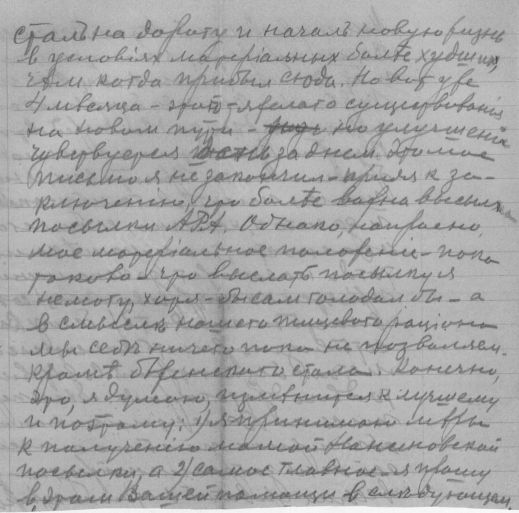 сталъ на дорогу и началъ новую жизнь
в условіях матеріальных болѣе худших,
чем когда прибыл сюда. Но вот уже
4 мѣсяца – этого – тяжелаго существованія
на новом пути – но улучшеніе
чувствуется день за днем. Это мое
письмо я не закончил – придя к за-
ключению, что болѣе важна высылка
посылки АРА. Однако, напрасно,
мое матеріальное положеніе – пока
таково – что выслать посылку я
не могу, хотя – бы сам голодал бы – а
в смыслѣ нашего пищевого раціона
мы себѣ ничего пока не позволяем.
кромѣ стола. Конечно,
это, я думаю, измѣнится к лучшему
и поэтому: 1) я принимаю мѣры
к полученію мамой Нансеновской
посылки, а 2) самое главное – я прошу
в Вашей помощи в слѣдующем.